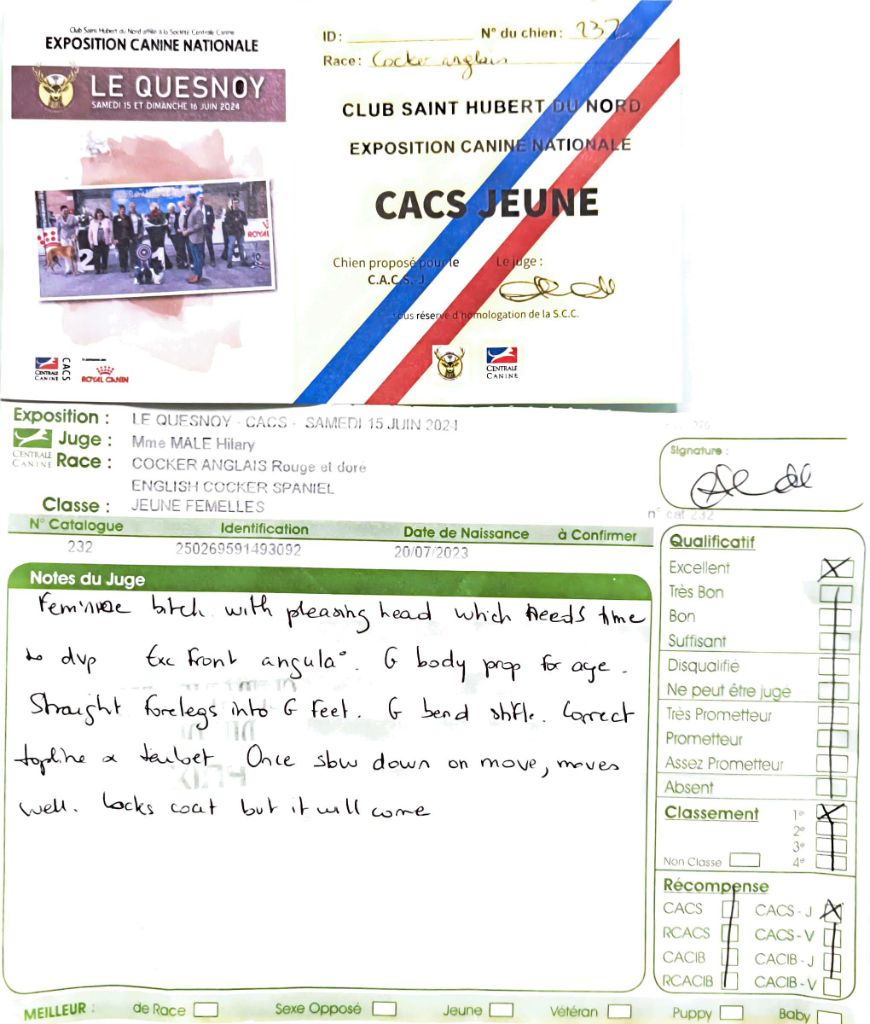 Club Saint Hubert du Nord affilié à la Société Centrale Canine
EXPOSITION CANINE NATIONALE
LE QUESNOY
SAMEDI 15 ET DIMANCHE 16 JUIN 2024
2
1
ROYAL
CENTRALE
CANINE
CACS
ROYAL CANIN
ID:
N° du chien: 232
Race: Cocker anglais
CLUB SAINT HUBERT DU NORD
EXPOSITION CANINE NATIONALE
CACS JEUNE
Chien proposé pour le
C.A.C.S. J
Le juge :
sous réserve d'homologation de la S.C.C.
CENTRALE
CANINE
Exposition : LE QUESNOY - CACS - SAMEDI 15 JUIN 2024
CENTRALE
CANINE
Juge : Mme MALE Hilary
Race : COCKER ANGLAIS Rouge et doré
ENGLISH COCKER SPANIEL
Classe : JEUNE FEMELLES
Signature :
n° cat 232
N° Catalogue Identification Date de Naissance à Confirmer
232 250269591493092 20/07/2023
Notes du Juge
Feminine bitch with pleasing head which needs time
to dvp Exc front angula°. G body prop for age.
Straight forelegs into G feet. G bend stifle. Correct
topline & tailset Once slow down on move, moves
well. Lacks coat but it will come
Qualificatif
Excellent X
Très Bon
Bon
Suffisant
Disqualifié
Ne peut être jugé
Très Prometteur
Prometteur
Assez Prometteur
Absent
Classement 1e X
2e
3e
Non Classé 4e
Récompense
CACS CACS - J X
RCACS CACS - V
CACIB CACIB - J
RCACIB CACIB - V
MEILLEUR : de Race Sexe Opposé Jeune Vétéran Puppy Baby